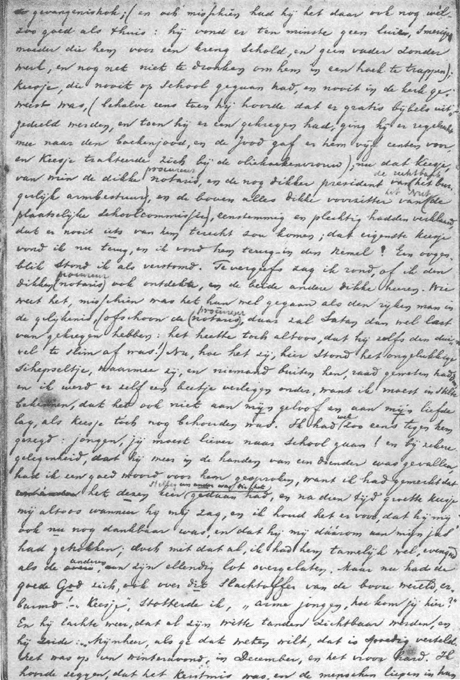 gevangenishok; (en ook misschien had hij het daar ook nog wel
zoo goed als thuis: hij vond er ten minste geen luie, smerige
moeder die hem voor een kreng schold, en geen vader zonder
werk, en nog net niet te dronken om hem in een hoek te trappen);
Keesje, die nooit op school gegaan had, en nooit in de kerk ge-
weest was, (behalve eens toen hij hoorde dat er gratis bijbels uit-
gedeeld werden, en toen hij er een gekregen had, ging hij er regelrecht
mee naar den boekenjood, en de jood gaf er hem vijf centen voor,
en Keesje trakteerde zich bij de oliekoekenvrouw); nu dat Keesje,
van wien de dikke procureur notaris, en de nog dikker president van de rechtbank het bur-
gerlijk armbestuur, en de boven alles dikke voorzitter van de
plaatselijke schoolcommissie, eenstemmig en plechtig hadden verklaard
dat er nooit iets van hem terecht zou komen; dat eigenste Keesje
vond ik nu terug, en ik vond hem terug in den Hemel! Een oogen-
blik stond ik als verstomd. Tevergeefs zag ik rond, of ik den
dikken procureur notaris ook ontdekte, en de beide andere dikke heeren. Wie
weet het, misschien was het hun wel gegaan als den rijken man in
de gelijkenis, (ofschoon de procureur notaris, daar zal Satan dan wel last
van gekregen hebben: het heette toch altoos, dat hij zelfs den dui-
vel te slim af was.) Nu, hoe het zij, hier stond het ongelukkige
schepseltje, waarmee zij, en niemand buiten hen, raad geweten hadden,
en ik werd er zelf een beetje verlegen onder, want ik moest in stilte
bekennen, dat het ook niet aan mijn geloof en aan mijn liefde
lag, als Keesje toch nog behouden was. Ik had wel zoo eens tegen hem
gezegd: jongen, jij moest liever naar school gaan! en bij zekere
gelegenheid, dat hij mees in de handen van een diender was gevallen,
had ik een goed woord voor hem gesproken, want ik had gemerkt dat
het dezen een gedaan had, en na dien tijd groette Keesje
mij altoos wanneer hij mij zag, en ik houd het er voor, dat hij mij
ook nu nog dankbaar was, en dat hij mij dáárom aan mijn jas
had getrokken; doch met dat al, ik had hem tamelijk wel, evenzeer
als de anderen aan zijn ellendig lot overgelaten. Maar nu had de
goede God zich, ook over dit slachtoffer van de booze wereld, er-
barmd. – Keesje, stotterde ik, "arme jongen, hoe kom jij hier?"
En hij lachte weer, dat al zijn witte tanden zichtbaar werden, en
hij zeide: – Mijnheer, als je dat weten wilt, dat is spoedig verteld.
Het was op een winteravond, in December, en het vroor hard. Ik
hoorde zeggen, dat het Kerstmis was, en de menschen liepen in hun